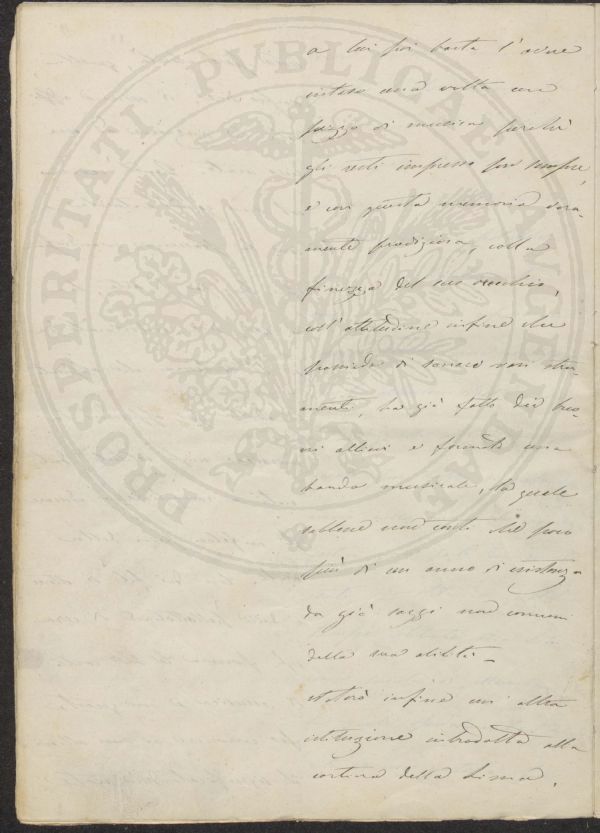 a lui poi basta l'avere
intesa una volta un
pezzo di musica perchè
gli resti impresso per sempre,
e con questa memoria vera-
mente prodigiosa, colla
finezza del suo orecchio,
coll'attitudine infine che
possiede di sonare vari stru-
menti, ha già fatto dei buo-
ni allievi e formato una
banda musicale, la quale
sebbene non conti che poco
più di un anno di esistenza
da già saggi non comuni
della sua abilità.
Noterò infine un'altra
istituzione introdotta alla
cortina della
PROSPERITATI PVBLICAE AVGENDAE